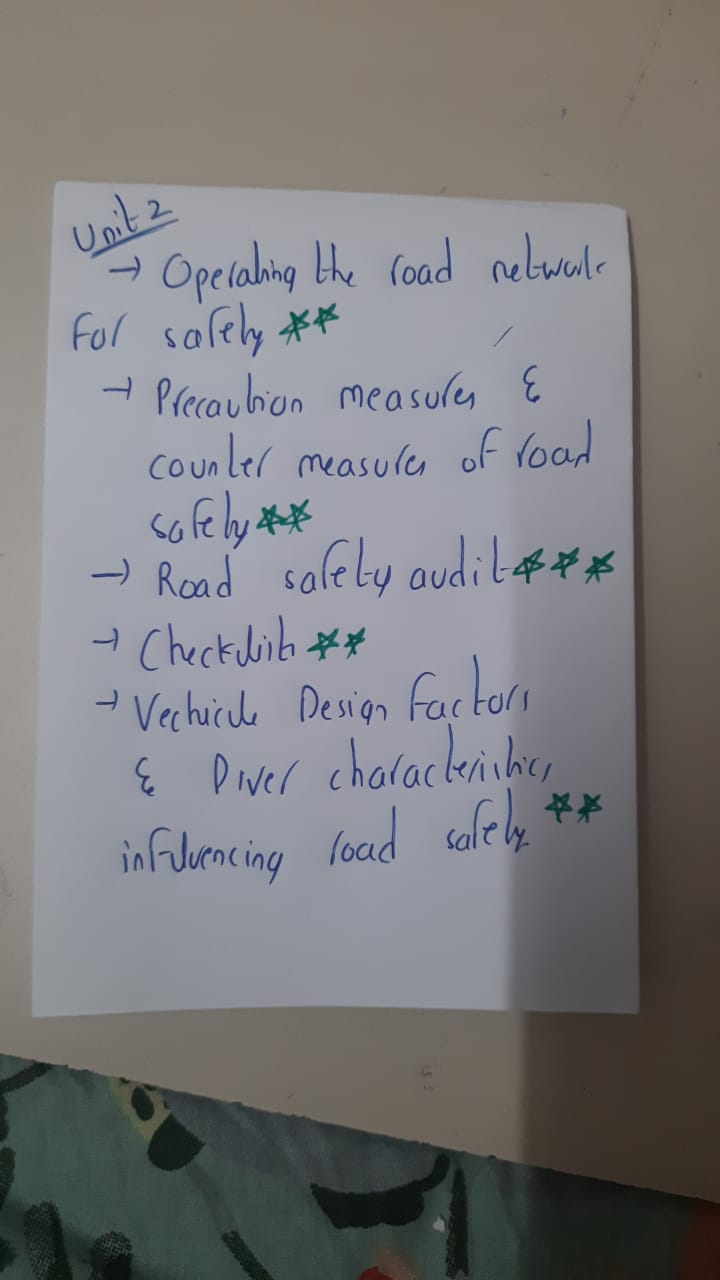 Unit 2
→ Operating the road network
for safety ☆☆
→ Precaution measures &
counter measures of road
safety ☆☆
→ Road safety audit ☆☆☆
→ Checklist ☆☆
→ Vechicle Design factors
& Diver characteristics
influencing road safety ☆☆